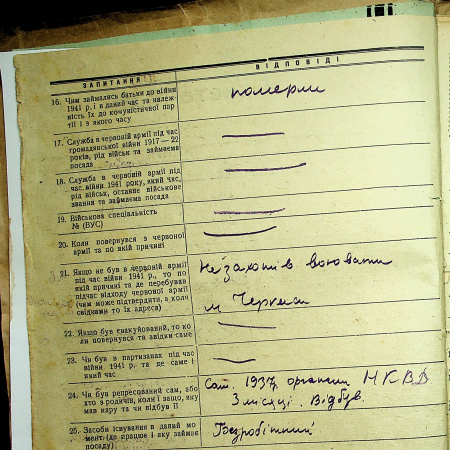 ЗАПИТАННЯ ВІДПОВІДІ
16. Чим займались батьки до війни
1941 р. і в даний час та належ-
ність їх до комуністичної пар-
тії і з якого часу
померли
17. Служба в червоній армії під час
громадянської війни 1917—22
років, рід військ та займаєма
посада
18. Служба в червоній армії під
час війни 1941 року, який час,
рід військ, останнє військове
звання та займаєма посада
19. Військова спеціальність
№ (ВУС)
20. Коли повернувся з червоної
армії та по якій причині
21. Якщо не був в червоній армії
під час війни 1941 р., то по
якій причині та де перебував
підчас відходу червоної армії
(чим може підтвердити, а коли
свідками то їх адреса)
Не захотів воювати
м Черкаси
22. Якщо був евакуйований, то ко-
ли повернувся та звідки саме
23. Чи був в партизанах під час
війни 1941 р. та де саме і
який час
24. Чи був репресований сам, або
хто з родичів, коли і защо, яку
мав кару та чи відбув її
Сам. 1937 органами НКВД
3 місяці. Відбув
25. Засоби існування в даний мо-
мент (де працює і яку займає
посаду)
Безробітний